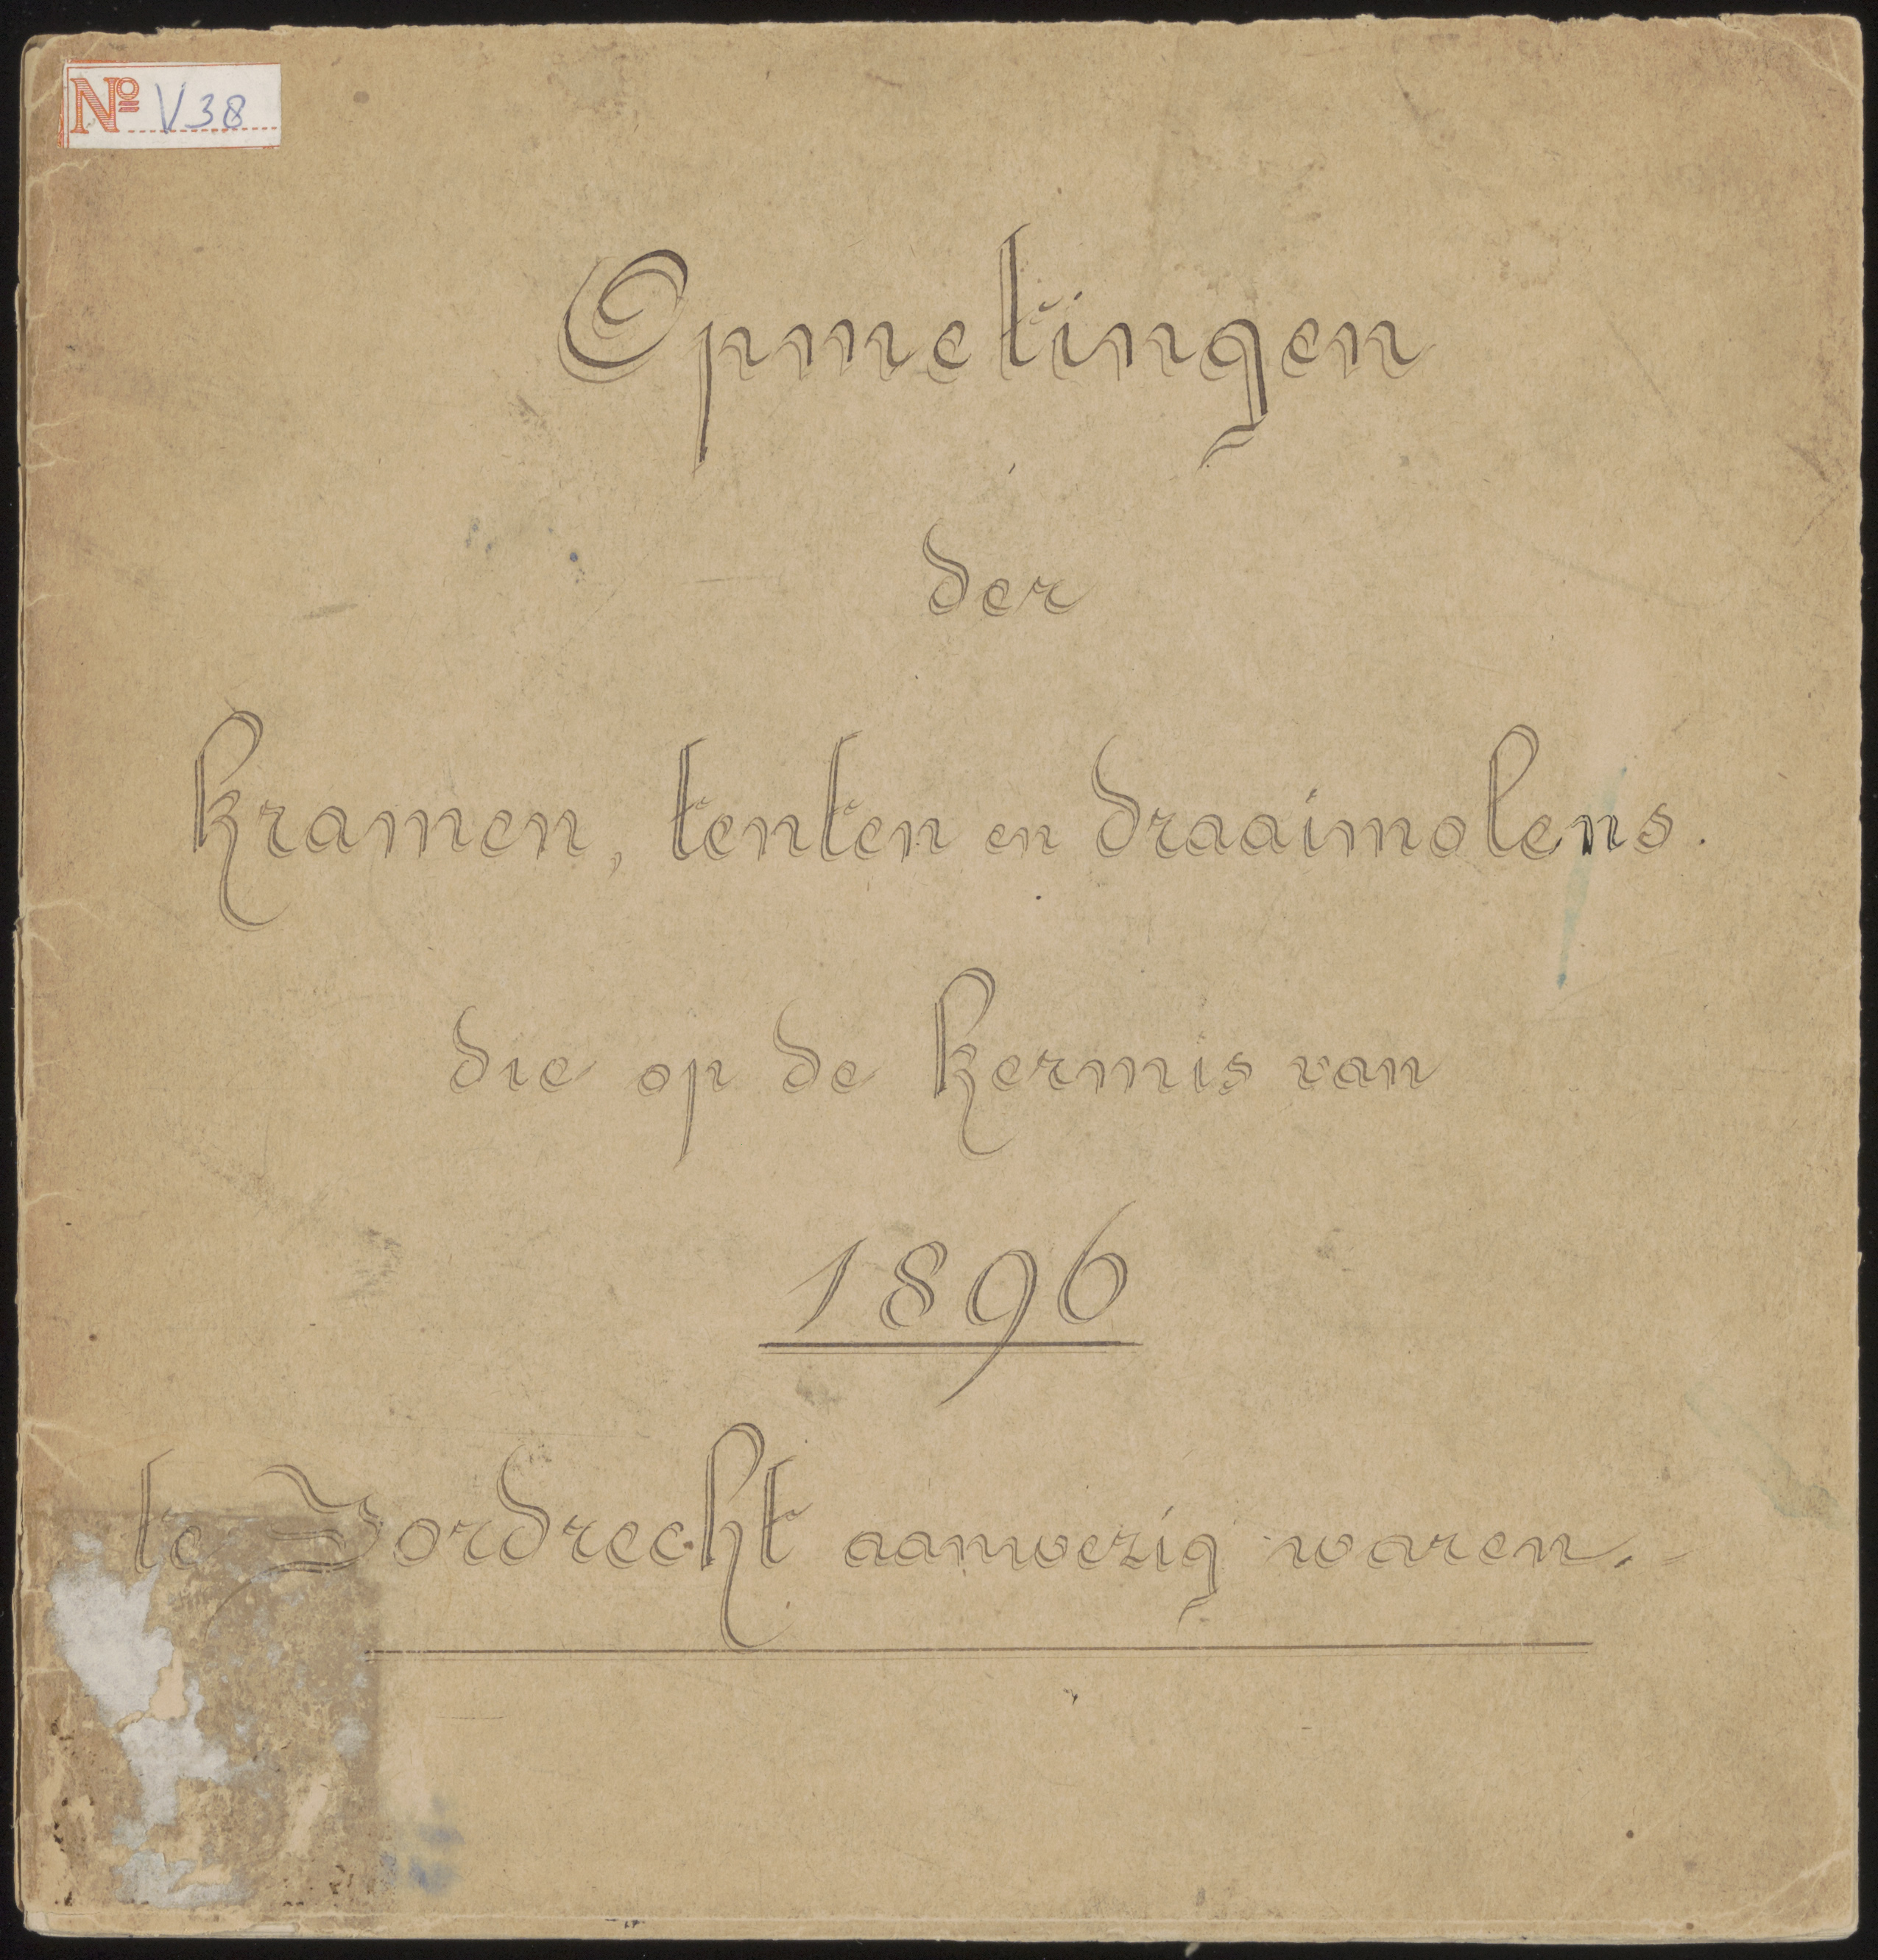 Nº V38
Opmetingen
der
kramen, tenten en draaimolens.
die op de kermis van
1896
te Dordrecht aanwezig waren.